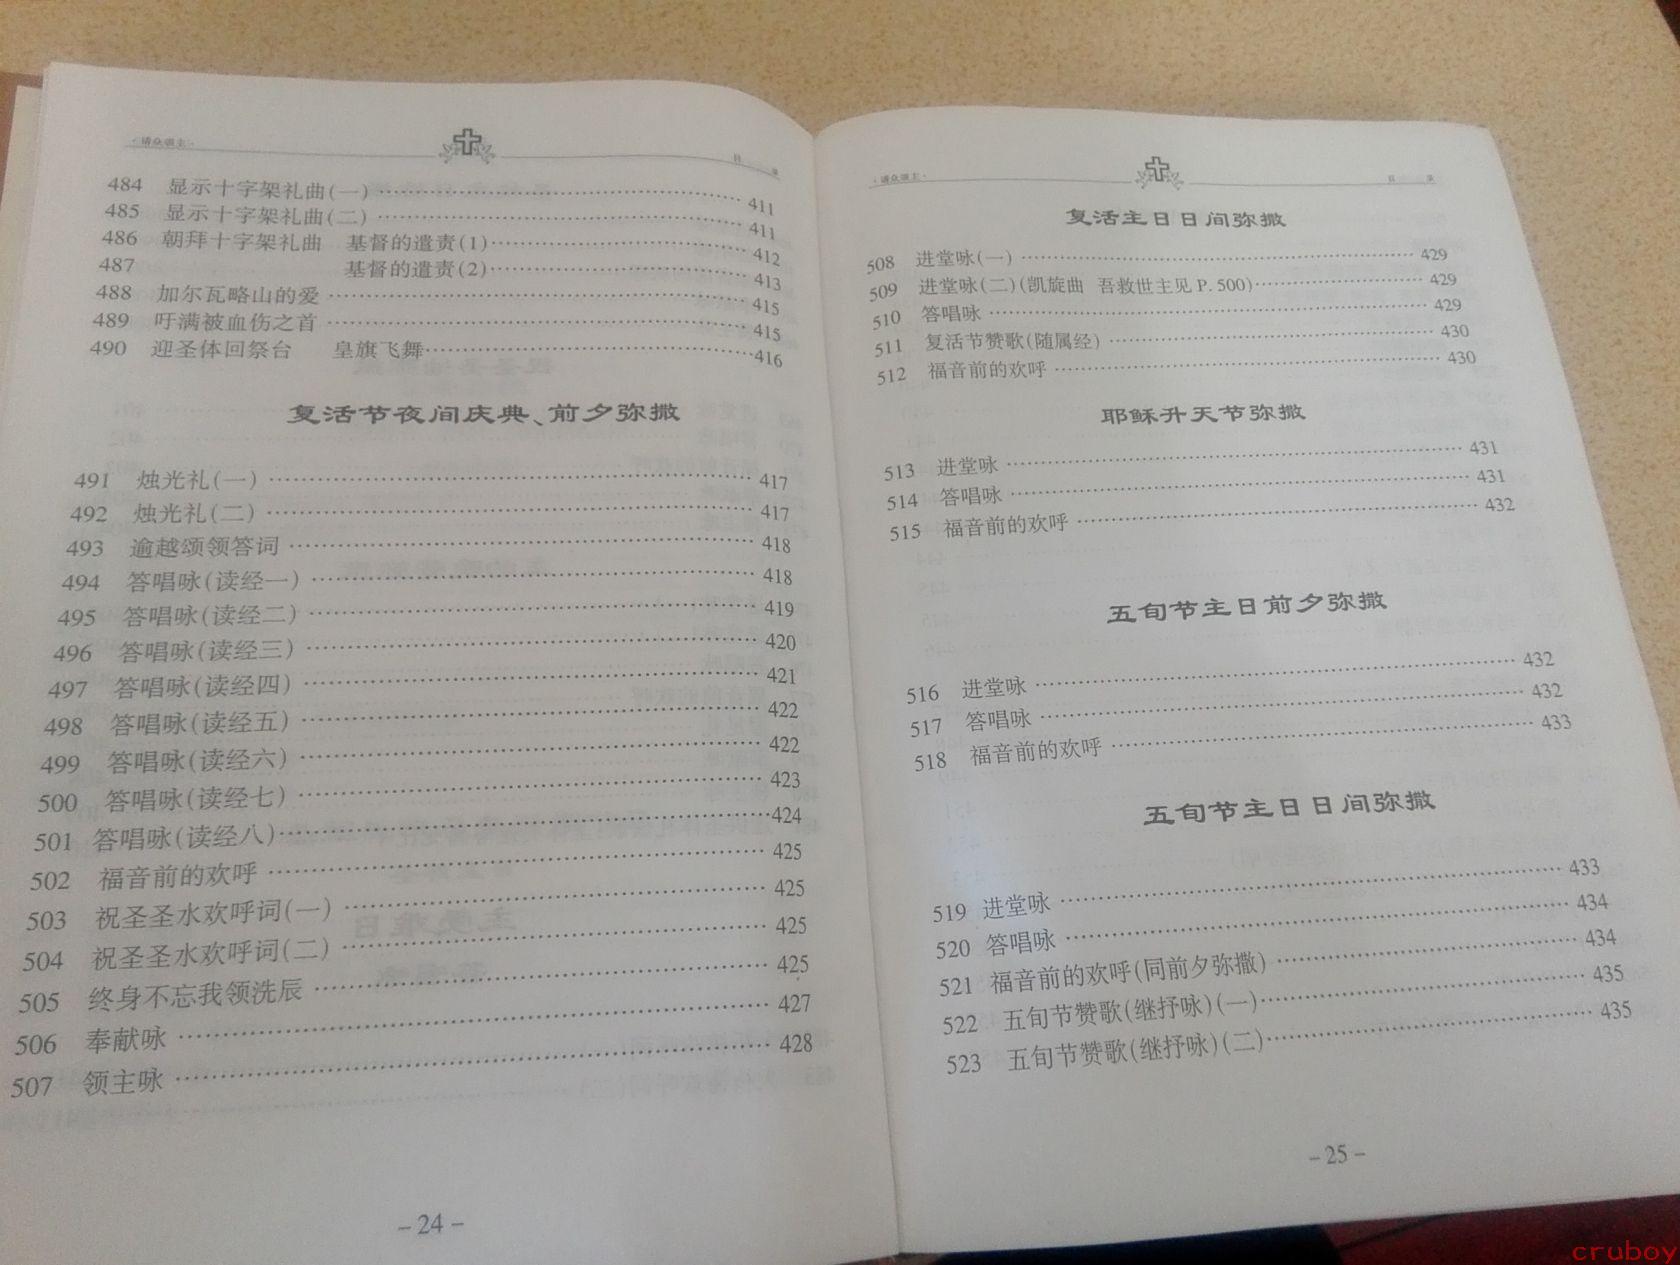 ·请众颂主·
目 录
484 显示十字架礼曲(一) 411
485 显示十字架礼曲(二) 411
486 朝拜十字架礼曲 基督的谴责(1) 412
487 基督的谴责(2) 413
488 加尔瓦略山的爱 415
489 吁满被血伤之首 415
490 迎圣体回祭台 皇旗飞舞 416
复活节夜间庆典、前夕弥撒
491 烛光礼(一) 417
492 烛光礼(二) 417
493 逾越颂领答词 418
494 答唱咏(读经一) 418
495 答唱咏(读经二) 419
496 答唱咏(读经三) 420
497 答唱咏(读经四) 421
498 答唱咏(读经五) 422
499 答唱咏(读经六) 422
500 答唱咏(读经七) 423
501 答唱咏(读经八) 424
502 福音前的欢呼 425
503 祝圣圣水欢呼词(一) 425
504 祝圣圣水欢呼词(二) 425
505 终身不忘我领洗辰 425
506 奉献咏 427
507 领主咏 428
–24–
·请众颂主·
目 录
复活主日日间弥撒
508 进堂咏(一) 429
509 进堂咏(二)(凯旋曲 吾救世主见P.500) 429
510 答唱咏 429
511 复活节赞歌(随属经) 430
512 福音前的欢呼 430
耶稣升天节弥撒
513 进堂咏 431
514 答唱咏 431
515 福音前的欢呼 432
五旬节主日前夕弥撒
516 进堂咏 432
517 答唱咏 432
518 福音前的欢呼 433
五旬节主日日间弥撒
519 进堂咏 433
520 答唱咏 434
521 福音前的欢呼(同前夕弥撒) 434
522 五旬节赞歌(继抒咏)(一) 435
523 五旬节赞歌(继抒咏)(二) 435
–25–
cruboy